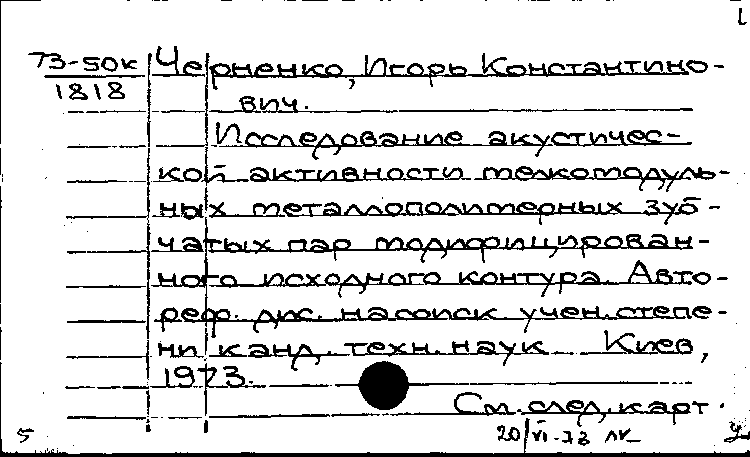 73-50к Черненко, Игорь Константино-
1818 вич.
Исследование акустичес-
кой активности мелкомодуль-
ных металлополимерных зуб-
чатых пар модифицирован-
ного исходного контура. Авто-
реф. дис. на соиск учен. степе-
ни канд. техн. наук Киев,
1973.
См. след. карт.
5 20/VI-73